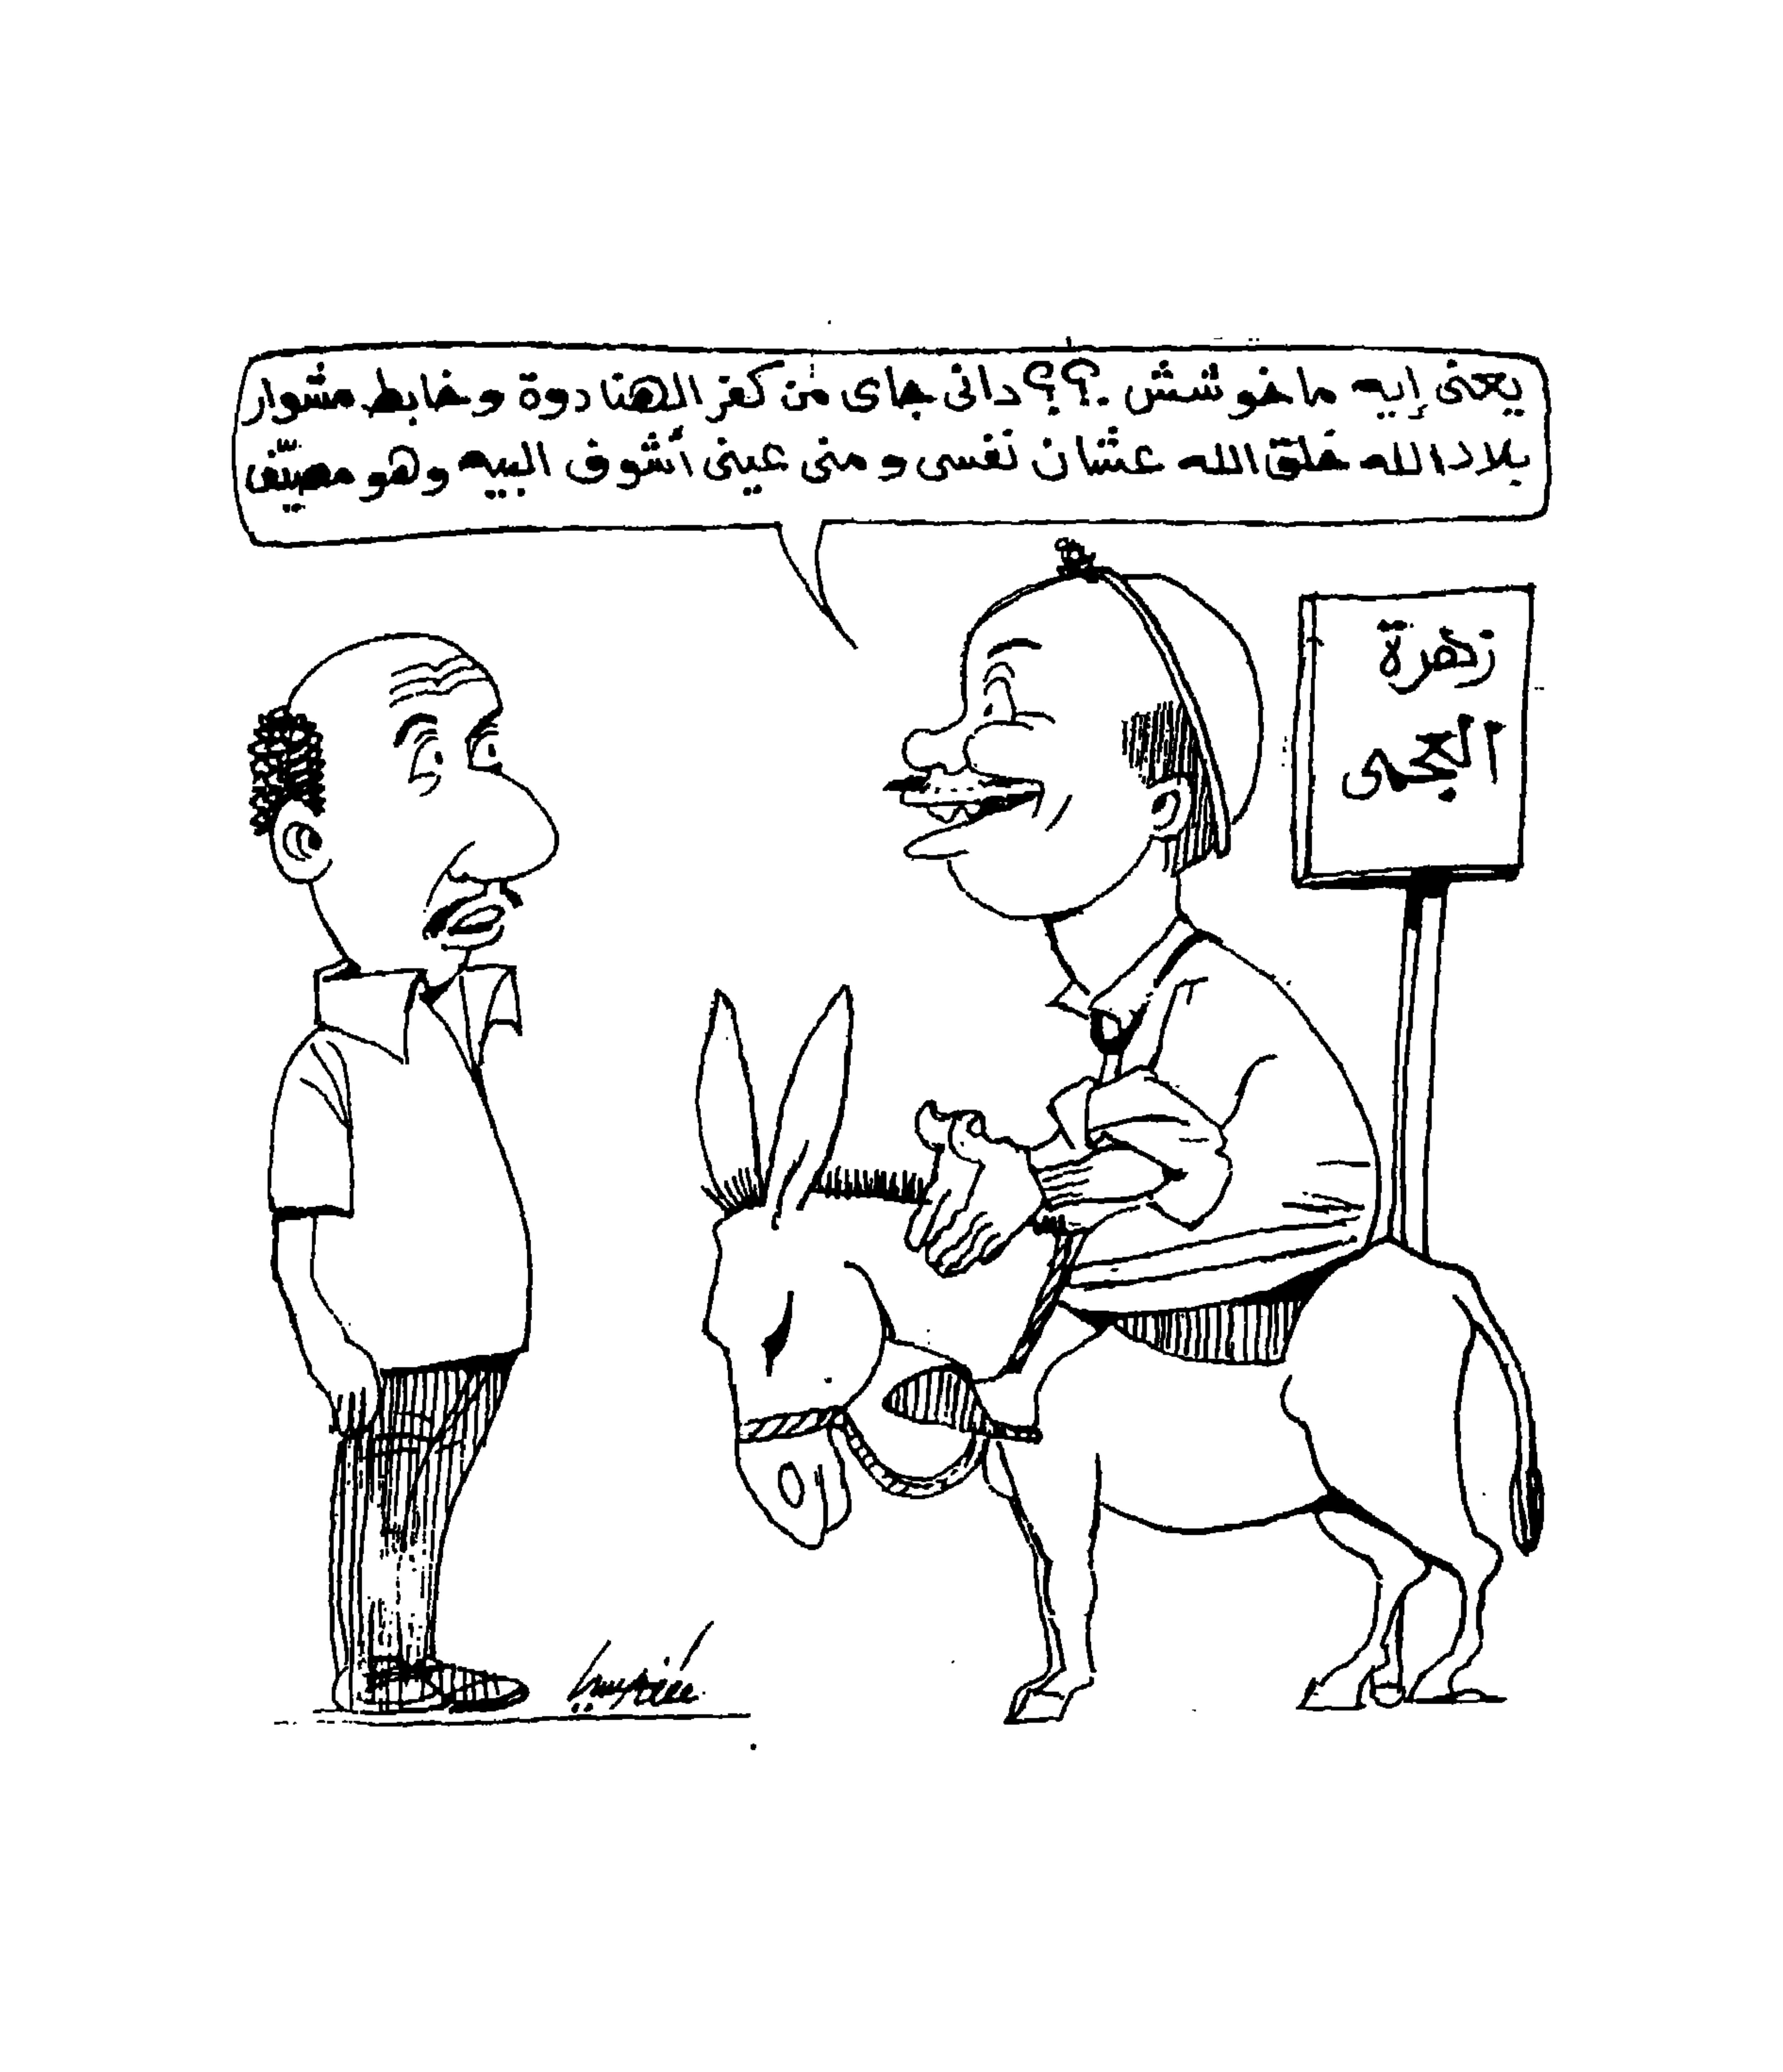 يعنى إيه ماخوشش .؟؟ دانى جاى من كفر الهنادوة وخابط مشوار
بلاد الله خلق الله عشان نفسى ومنى عينى أشوف البيه وهو مصيّف
زهرة
العجمى